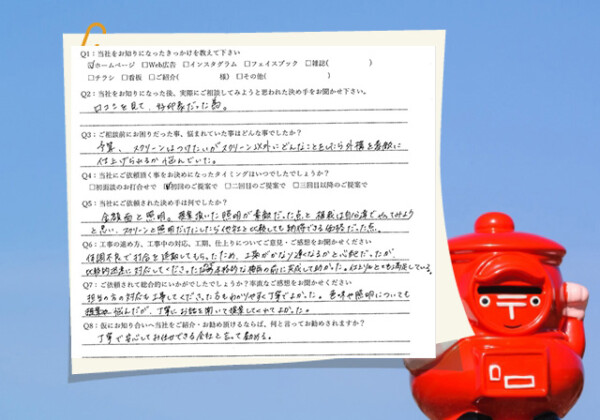 Q1：当社をお知りになったきっかけを教えて下さい
☑ホームページ □Web広告 □インスタグラム □フェイスブック □雑誌( )
□チラシ □看板 □ご紹介( 様) □その他( )
Q2：当社をお知りになった後、実際にご相談してみようと思われた決め手をお聞かせ下さい。
口コミを見て、好印象だった為。
Q3：ご相談前にお困りだった事、悩まれていた事はどんな事でしたか？
予算、スクリーンはつけたいがスクリーン以外にどんなことをしたら外構を素敵に
仕上げられるか悩んでいた。
Q4：当社にご依頼頂く事をお決めになったタイミングはいつでしたでしょうか？
□初面談のお打合せで ☑初回のご提案で □二回目のご提案で □三回目以降のご提案で
Q5：当社にご依頼された決め手は何でしたか？
金額面と照明。提案頂いた照明が素敵だった点と 植栽は自分達でやってみよう
と思い、スクリーンと照明だけにしたら他社と比較しても納得できる価格だった点。
Q6：工事の進め方、工事中の対応、工期、仕上りについてご意見・ご感想をお聞かせください
体調不良で打合を延期してもらったため、工事がかなり遅くなるかと心配だったが、
比較的迅速に対応してくださった為本格的な 前に完成して助かった。仕上がりとても満足している。
Q7：ご依頼されて総合的にいかがでしたでしょうか？率直なご感想をお聞かせください
担当の方の対応も工事してくださった方もわかりやすく丁寧でよかった。 や照明についても
悩んだが、丁寧にお話を聞いて提案してくれてよかった。
Q8：仮にお知り合いへ当社をご紹介・お勧め頂けるならば、何と言ってお勧めされますか？
丁寧で安心してお任せできる会社と言って勧める。
〒